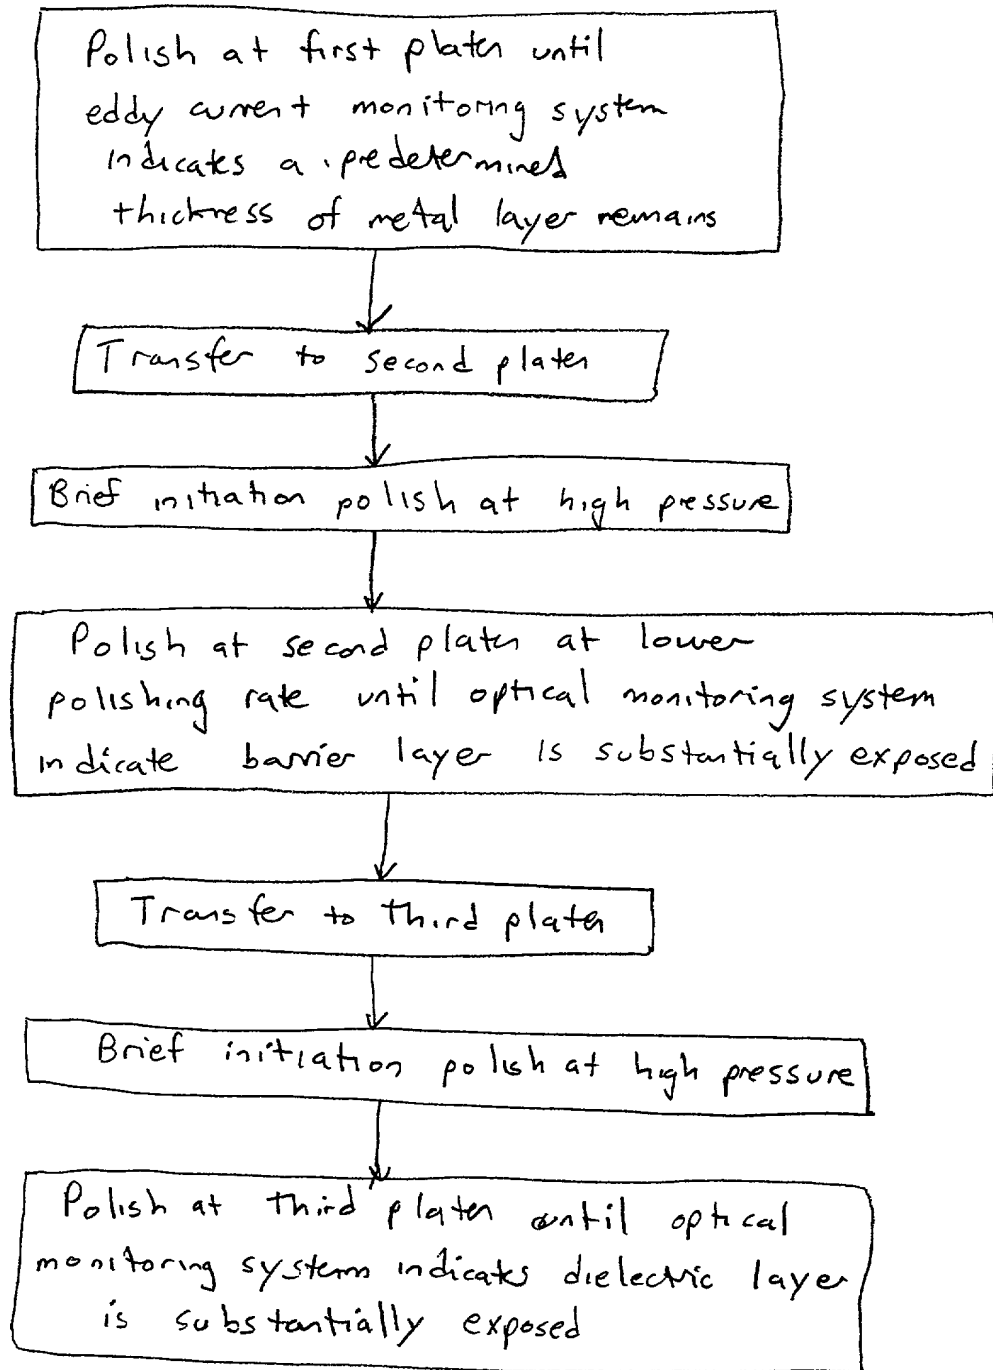 Polish at first platen until
eddy current monitoring system
indicates a predetermined
thickness of metal layer remains
Transfer to second platen
Brief initiation polish at high pressure
Polish at second platen at lower
polishing rate until optical monitoring system
indicate barrier layer is substantially exposed
Transfer to third platen
Brief initiation polish at high pressure
Polish at third platen until optical
monitoring system indicates dielectric layer
is substantially exposed